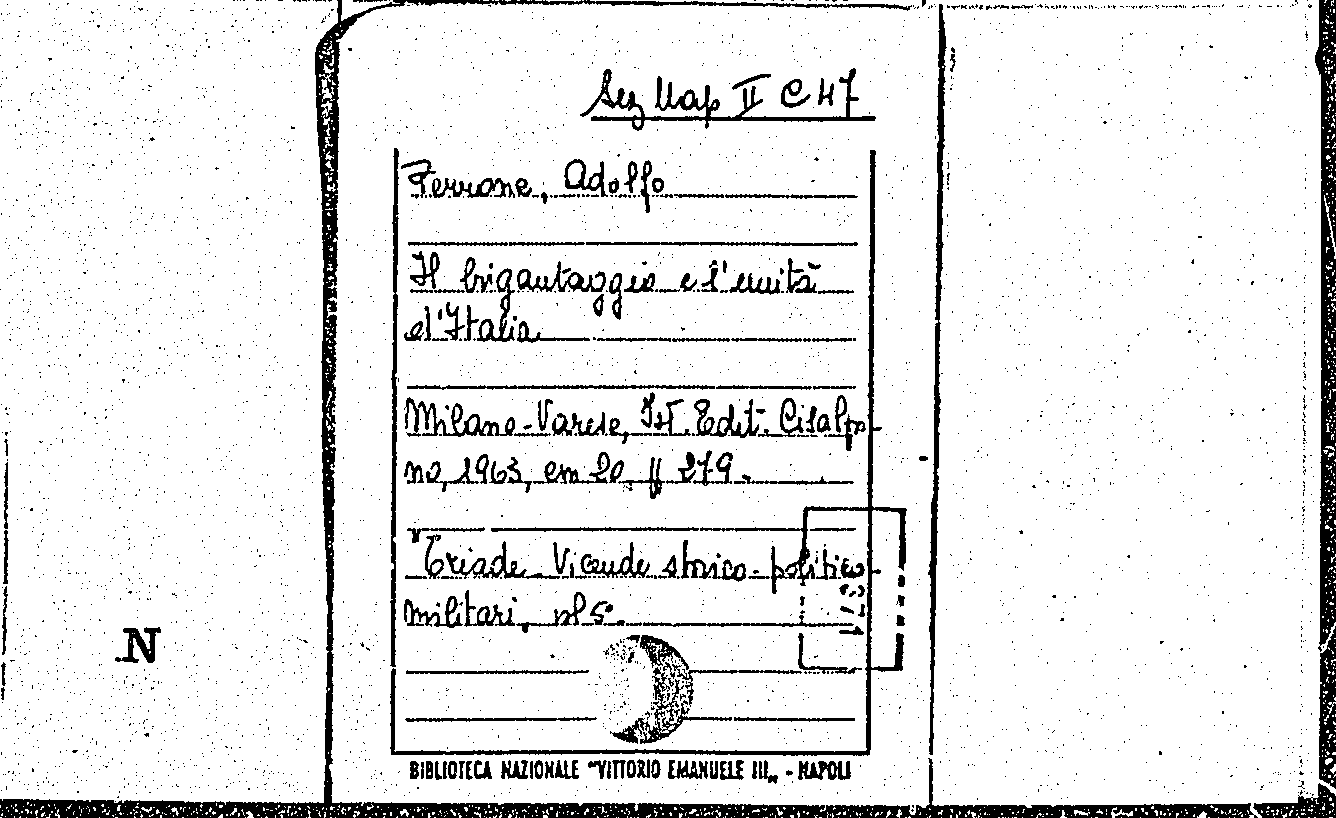 Sez Nap II C 47
Perrone, Adolfo
Il brigantaggio e l'unità
d'Italia
Milano-Varese, Ist. Edit. Cisalpi-
no, 1963, in 20, pp 279.
"Triade. Vicende storico-politico-
militari, n° 5".
N
BIBLIOTECA NAZIONALE "VITTORIO EMANUELE III„ - NAPOLI